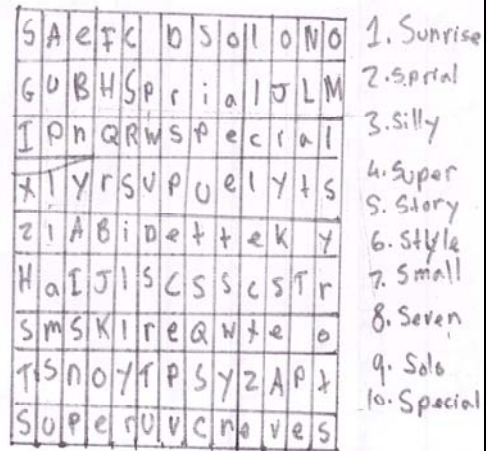 S A e F C D S o l O N O
G U B H S p r i a l J L M
I P n Q R W S P e c i a l
X l y r S U P U e l Y t S
Z i A B i D e t t e K y
H a I J l S C S S c S T r
S m S K l r e Q W t e o
T S n O Y T P S Y Z A P t
S u P e r U V C n e v e s
1. Sunrise
2. Sprial
3. Silly
4. Super
5. Story
6. Style
7. Small
8. Seven
9. Solo
10. Special